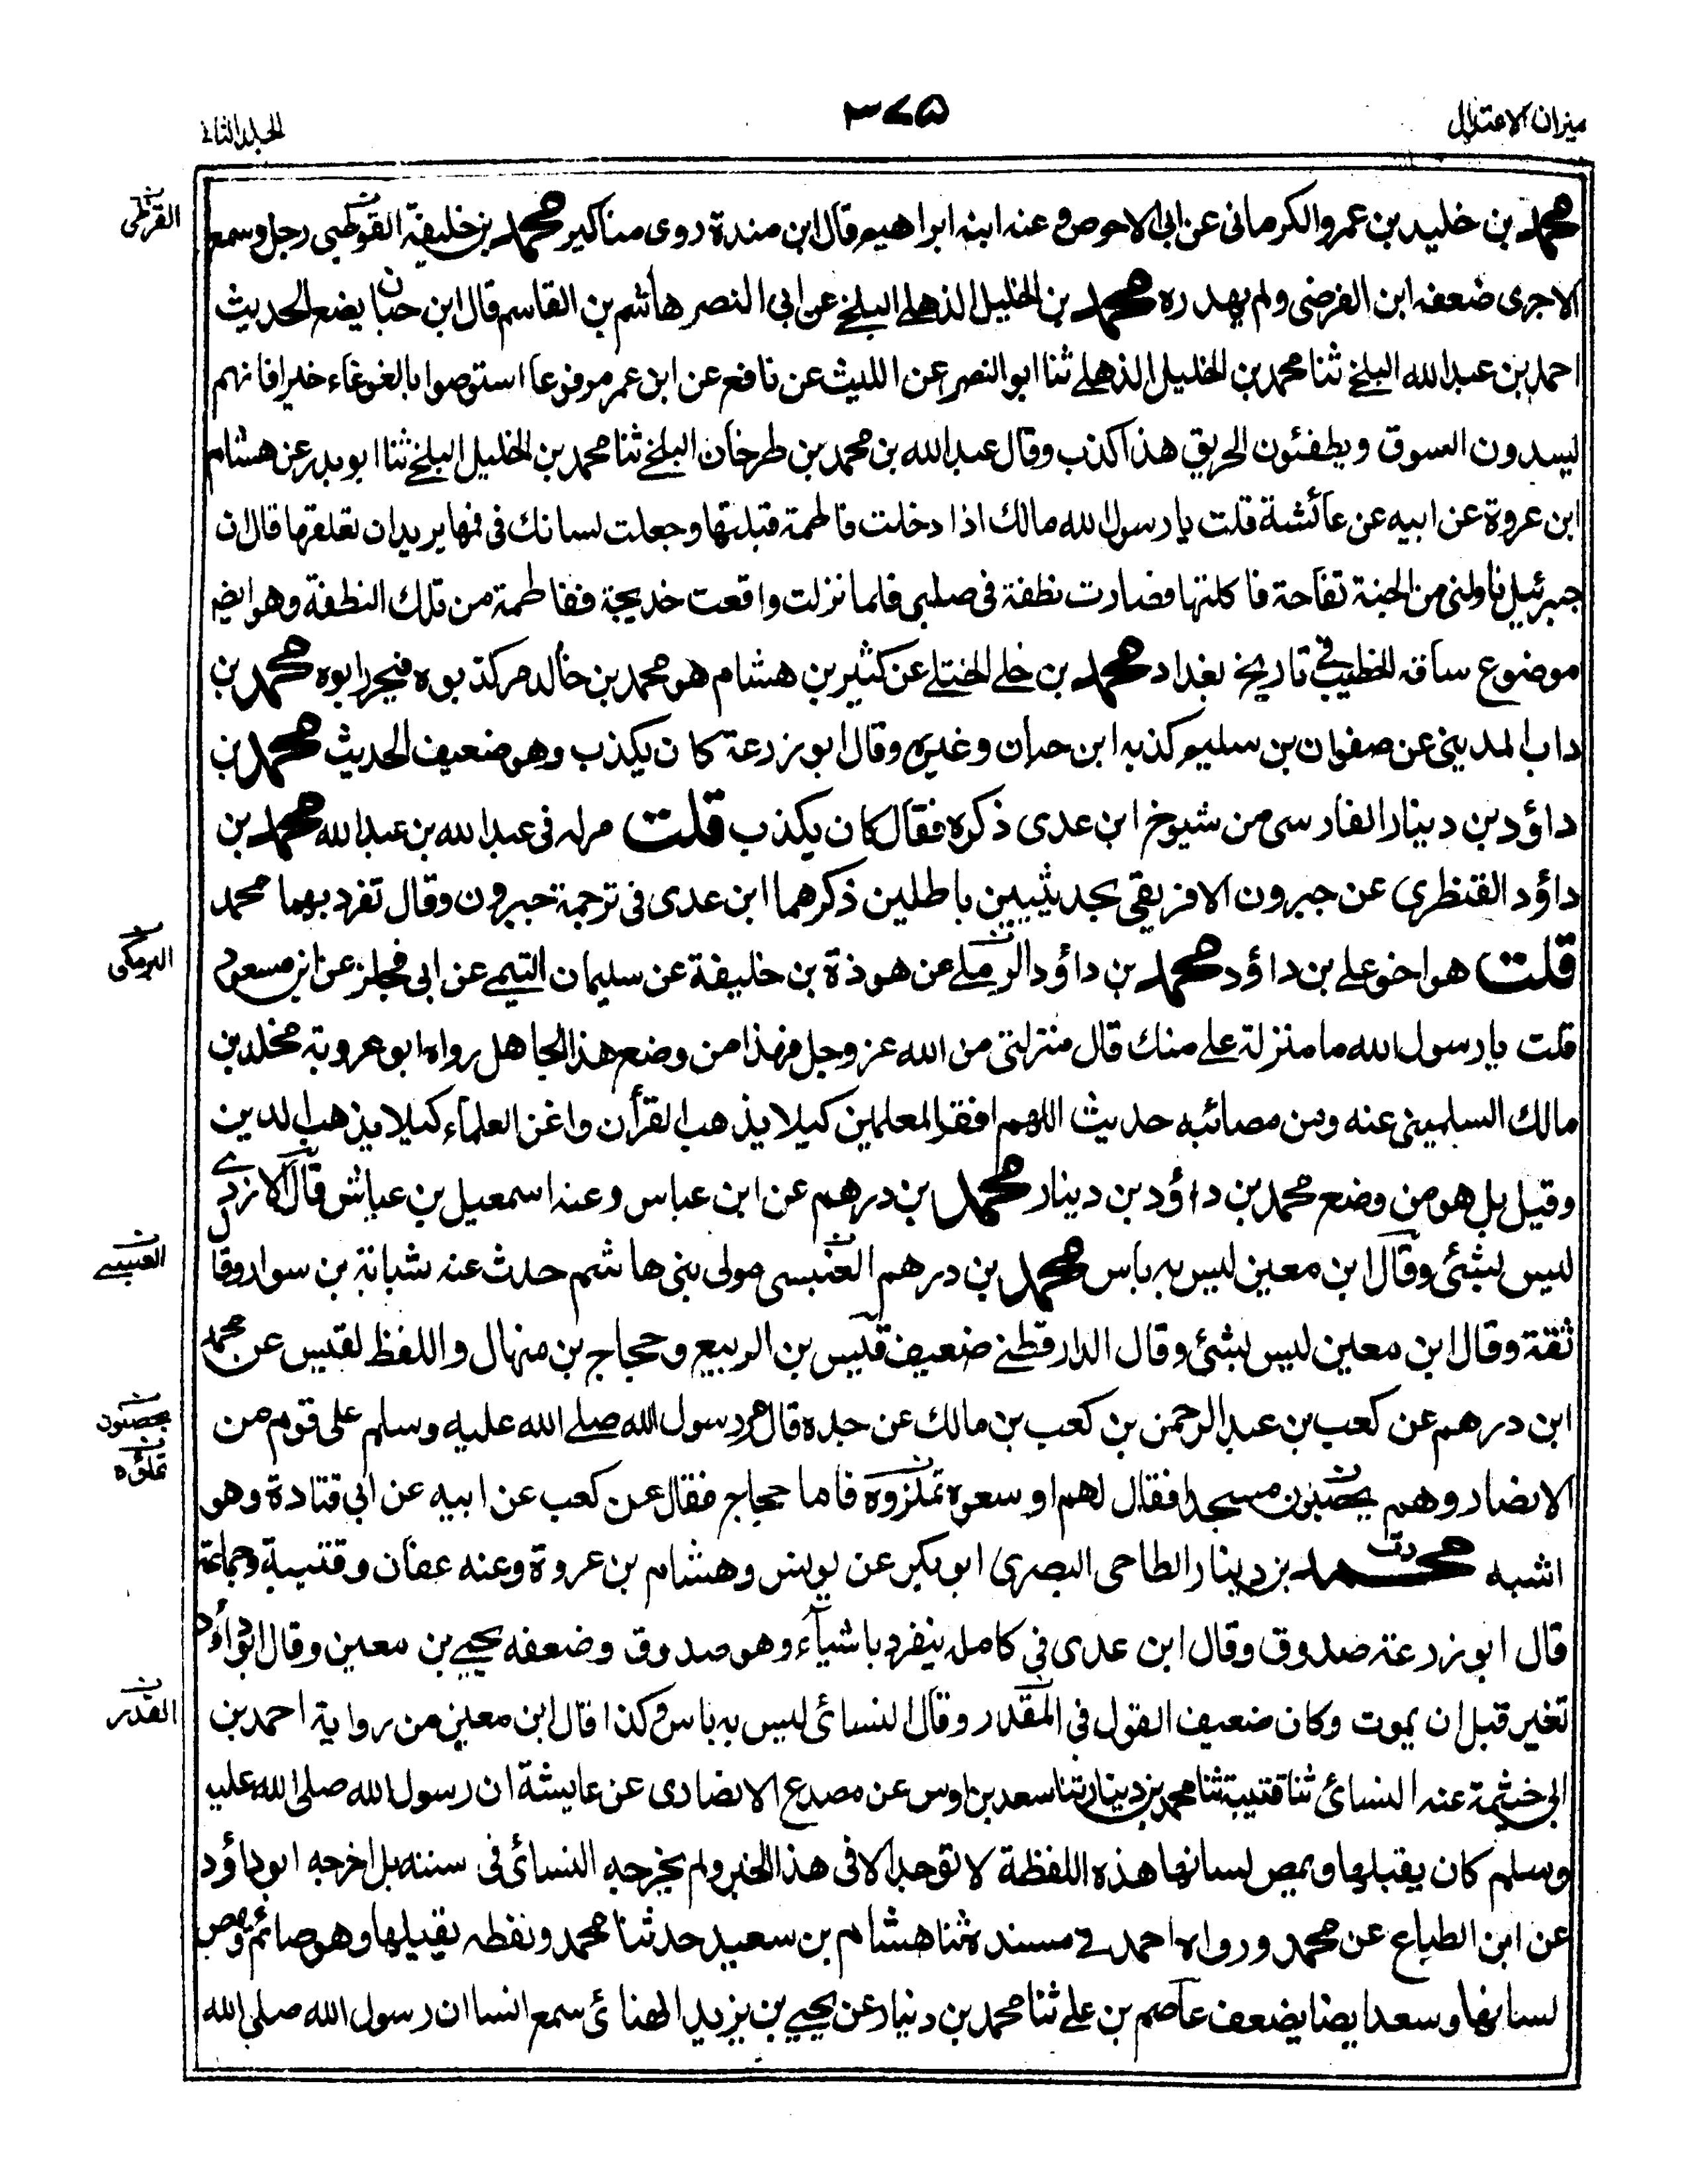 ميزان الاعتدال
٣٧٥
الجلد الثانى
محمد بن خليد بن عمرو الكرمانى عن ابى الاحوص وعنه ابنه ابراهيم قال ابن مندة روى مناكير محمد بن خليفة القوطبى رجل وسمع
القرظى
الاجرى ضعفه ابن الفرضى ولم يهدره محمد بن الخليل الذهلى البلخى عن ابى النصر هاشم بن القاسم قال ابن حبان يضع الحديث
احمد بن عبد الله البلخى ثنا محمد بن الخليل الذهلى ثنا ابو النصر عن الليث عن نافع عن ابن عمر مرفوعا استوصوا بالغوغاء خيرا فانهم
ليسدون السوق ويطفئون الحريق هذا كذب وقال عبد الله بن محمد بن طرخان البلخى ثنا محمد بن الخليل البلخى ثنا ابو بدر عن هشام
ابن عروة عن ابيه عن عائشة قلت يا رسول الله مالك اذا دخلت فاطمة قبلتها وجعلت لسانك فى فمها يريد ان تعلقها قال ان
جبرئيل ناولنى من الجنة تفاحة فاكلتها فصارت نطفة فى صلبى فلما نزلت واقعت خديجة ففاطمة من تلك النطفة وهو ايضا
موضوع ساقه الخطيب فى تاريخ بغداد محمد بن خلى الختلى عن كثير بن هشام هو محمد بن خالد مر كذبوه فيجر ابوه محمد بن
داب المدينى عن صفوان بن سليم كذبه ابن حبان وغيره وقال ابو زرعة كان يكذب وهو ضعيف الحديث محمد بن
داؤد بن دينار الفارسى من شيوخ ابن عدى ذكره فقال كان يكذب قلت مر له فى عبد الله بن عبد الله محمد بن
داؤد القنطرى عن جبرون الافريقى بحديثين باطلين ذكرهما ابن عدى فى ترجمة جبرون وقال تفرد بهما محمد
قلت هو اخو على بن داؤد محمد بن داؤد الرملى عن هوذة بن خليفة عن سليمان التيمى عن ابى مجلز عن ابن مسعود
البرمكى
قلت يا رسول الله ما منزلة على منك قال منزلتى من الله عز وجل فهذا من وضع هذا الجاهل رواه ابو عروبة مخلد بن
مالك السلمينى عنه ومن مصائبه حديث اللهم افقر المعلمين كيلا يذهب القرأن واغن العلماء كيلا يذهب الدين
وقيل بل هو من وضع محمد بن داؤد بن دينار محمد بن درهم عن ابن عباس وعنه اسمعيل بن عياش قال الازدى
ليس بشئى وقال ابن معين ليس به باس محمد بن درهم العنبسى مولى بنى هاشم حدث عنه شبابة بن سوار وقال
العبسى
ثقة وقال ابن معين ليس بشئى وقال الدارقطنى ضعيف قيس بن الربيع وحجاج بن منهال واللفظ لقيس عن محمد
ابن درهم عن كعب بن عبد الرحمن بن كعب بن مالك عن جده قال مر رسول الله صلى الله عليه وسلم على قوم من
يحصنون
تملؤه
الانصار وهم يحصبون مسجدا فقال لهم اوسعوه تملزوه فاما حجاج فقال عن كعب عن ابيه عن ابى قتادة وهو
اشبه محمد دت بن دينار الطاحى البصرى ابو بكر عن يونس وهشام بن عروة وعنه عفان وقتيبة وجماعة
قال ابو زرعة صدوق وقال ابن عدى فى كامله ينفرد باشياء وهو صدوق وضعفه يحيى بن معين وقال ابو داؤد
تغير قبل ان يموت وكان ضعيف القول فى المقدر وقال النسائى ليس به باس وكذا قال ابن معين من رواية احمد بن
القدر
ابى خيثمة عنه النسائى ثنا قتيبة ثنا محمد بن دينار ثنا سعد بن اوس عن مصدع الانصارى عن عايشة ان رسول الله صلى الله عليه
وسلم كان يقبلها ويمص لسانها هذه اللفظة لا توجد الا فى هذا الخبر ولم يخرجه النسائى فى سننه بل اخرجه ابو داؤد
عن ابن الطباع عن محمد ورواه احمد فى مسنده ثنا هشام بن سعيد حدثنا محمد ونفطه يقبلها وهو صائم ويمص
لسانها وسعد ايضا يضعف عاصم بن على ثنا محمد بن دينار عن يحيى بن يزيد الهنائى سمع انسا ان رسول الله صلى الله